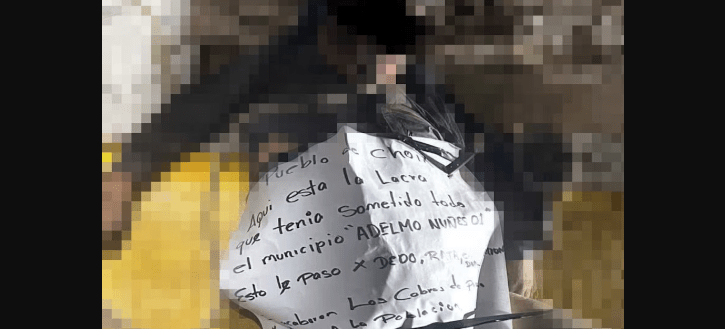 Pueblo de Choi
Aqui esta la Lacra
que tenia sometido todo
el municipio "ADELMO NUÑES 01"
Esto le Paso X DEDO,
Los Cobros de
la Poblacion